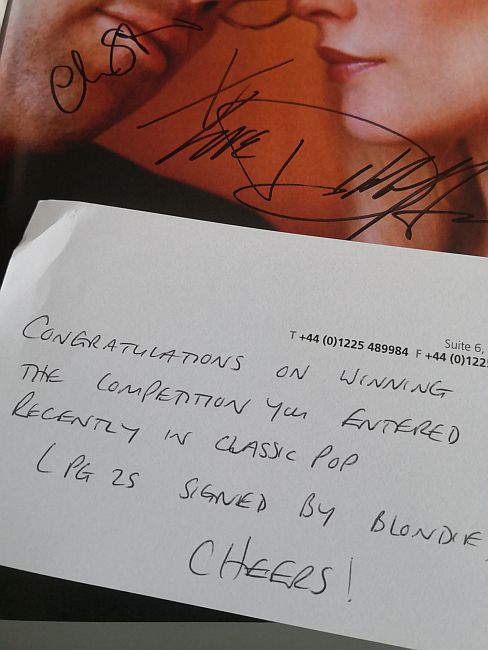 Chris St
LOVE
Suite 6,
T +44 (0)1225 489984 F +44 (0)122
CONGRATULATIONS ON WINNING
THE COMPETITION YOU ENTERED
RECENTLY IN CLASSIC POP
(PG 25 SIGNED BY BLONDIE,
CHEERS!